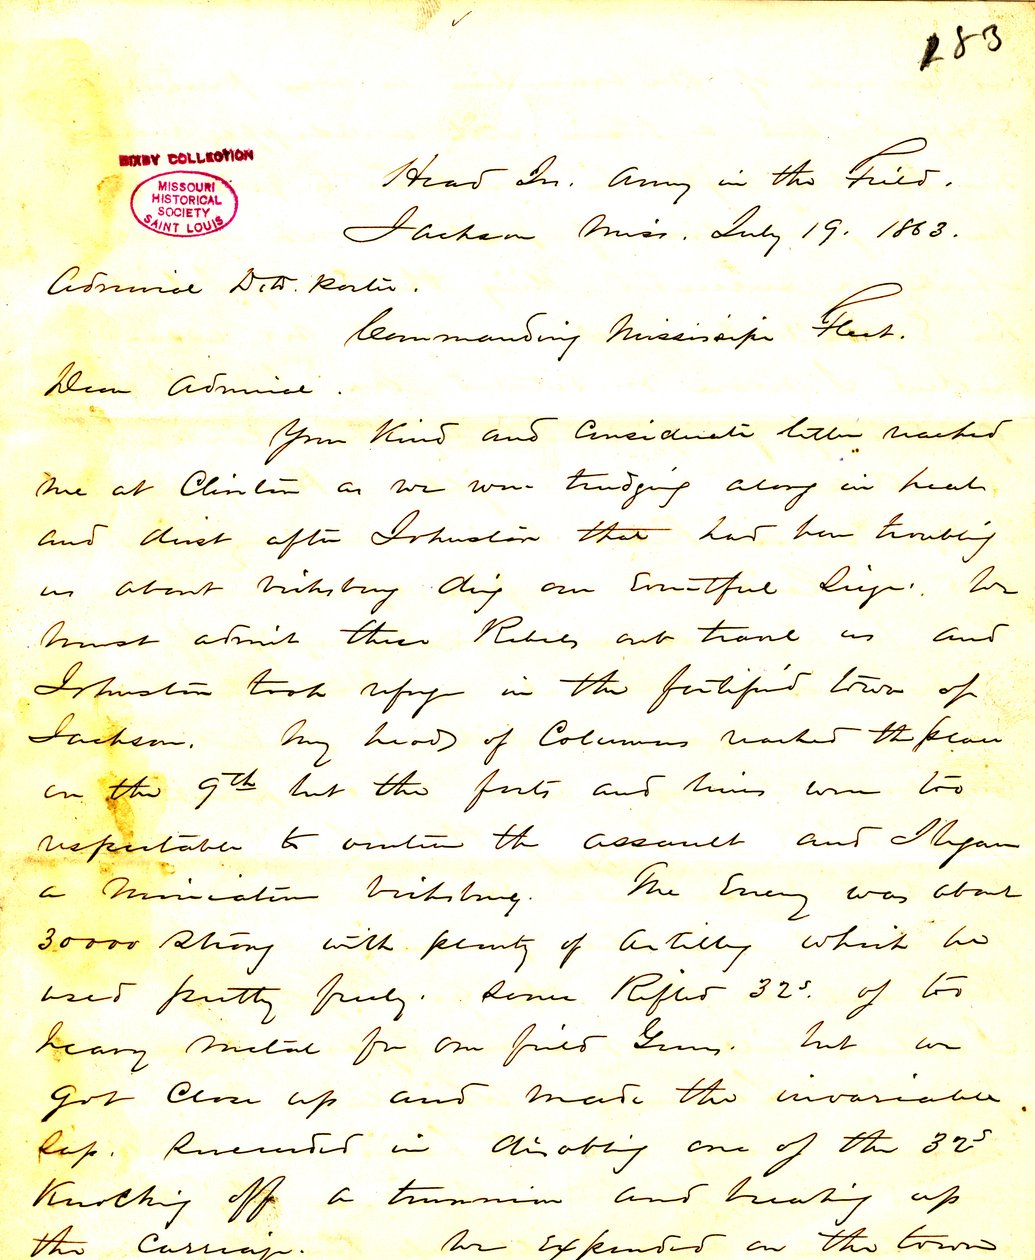 183
BIXBY COLLECTION
MISSOURI
HISTORICAL
SOCIETY
SAINT LOUIS
Head Qr. Army in the Field.
Jackson Miss. July 19. 1863.
Admiral D.D. Porter.
Commanding Mississippi Fleet.
Dear Admiral.
Your Kind and Considerate letter reached
me at Clinton as we were trudging along in heat
and dust after Johnston that had been troubling
us about Vicksburg dig our Eventful Siege. We
must admit these Rebels out travel us and
Johnston took refuge in the fortified town of
Jackson. My heads of Columns reached the place
on the 9th but the forts and lines were too
respectable to venture the assault and I began
a Miniature Vicksburg. The Enemy was about
30000 strong with plenty of Artillery which he
used pretty freely. Some Rifled 32s. of too
heavy metal for our field Guns. but we
got close up and made the invariable
Sap. succeeded in disabling one of the 32s
Knocking off a trunnion and breaking up
the Carriage. We Expended on the town